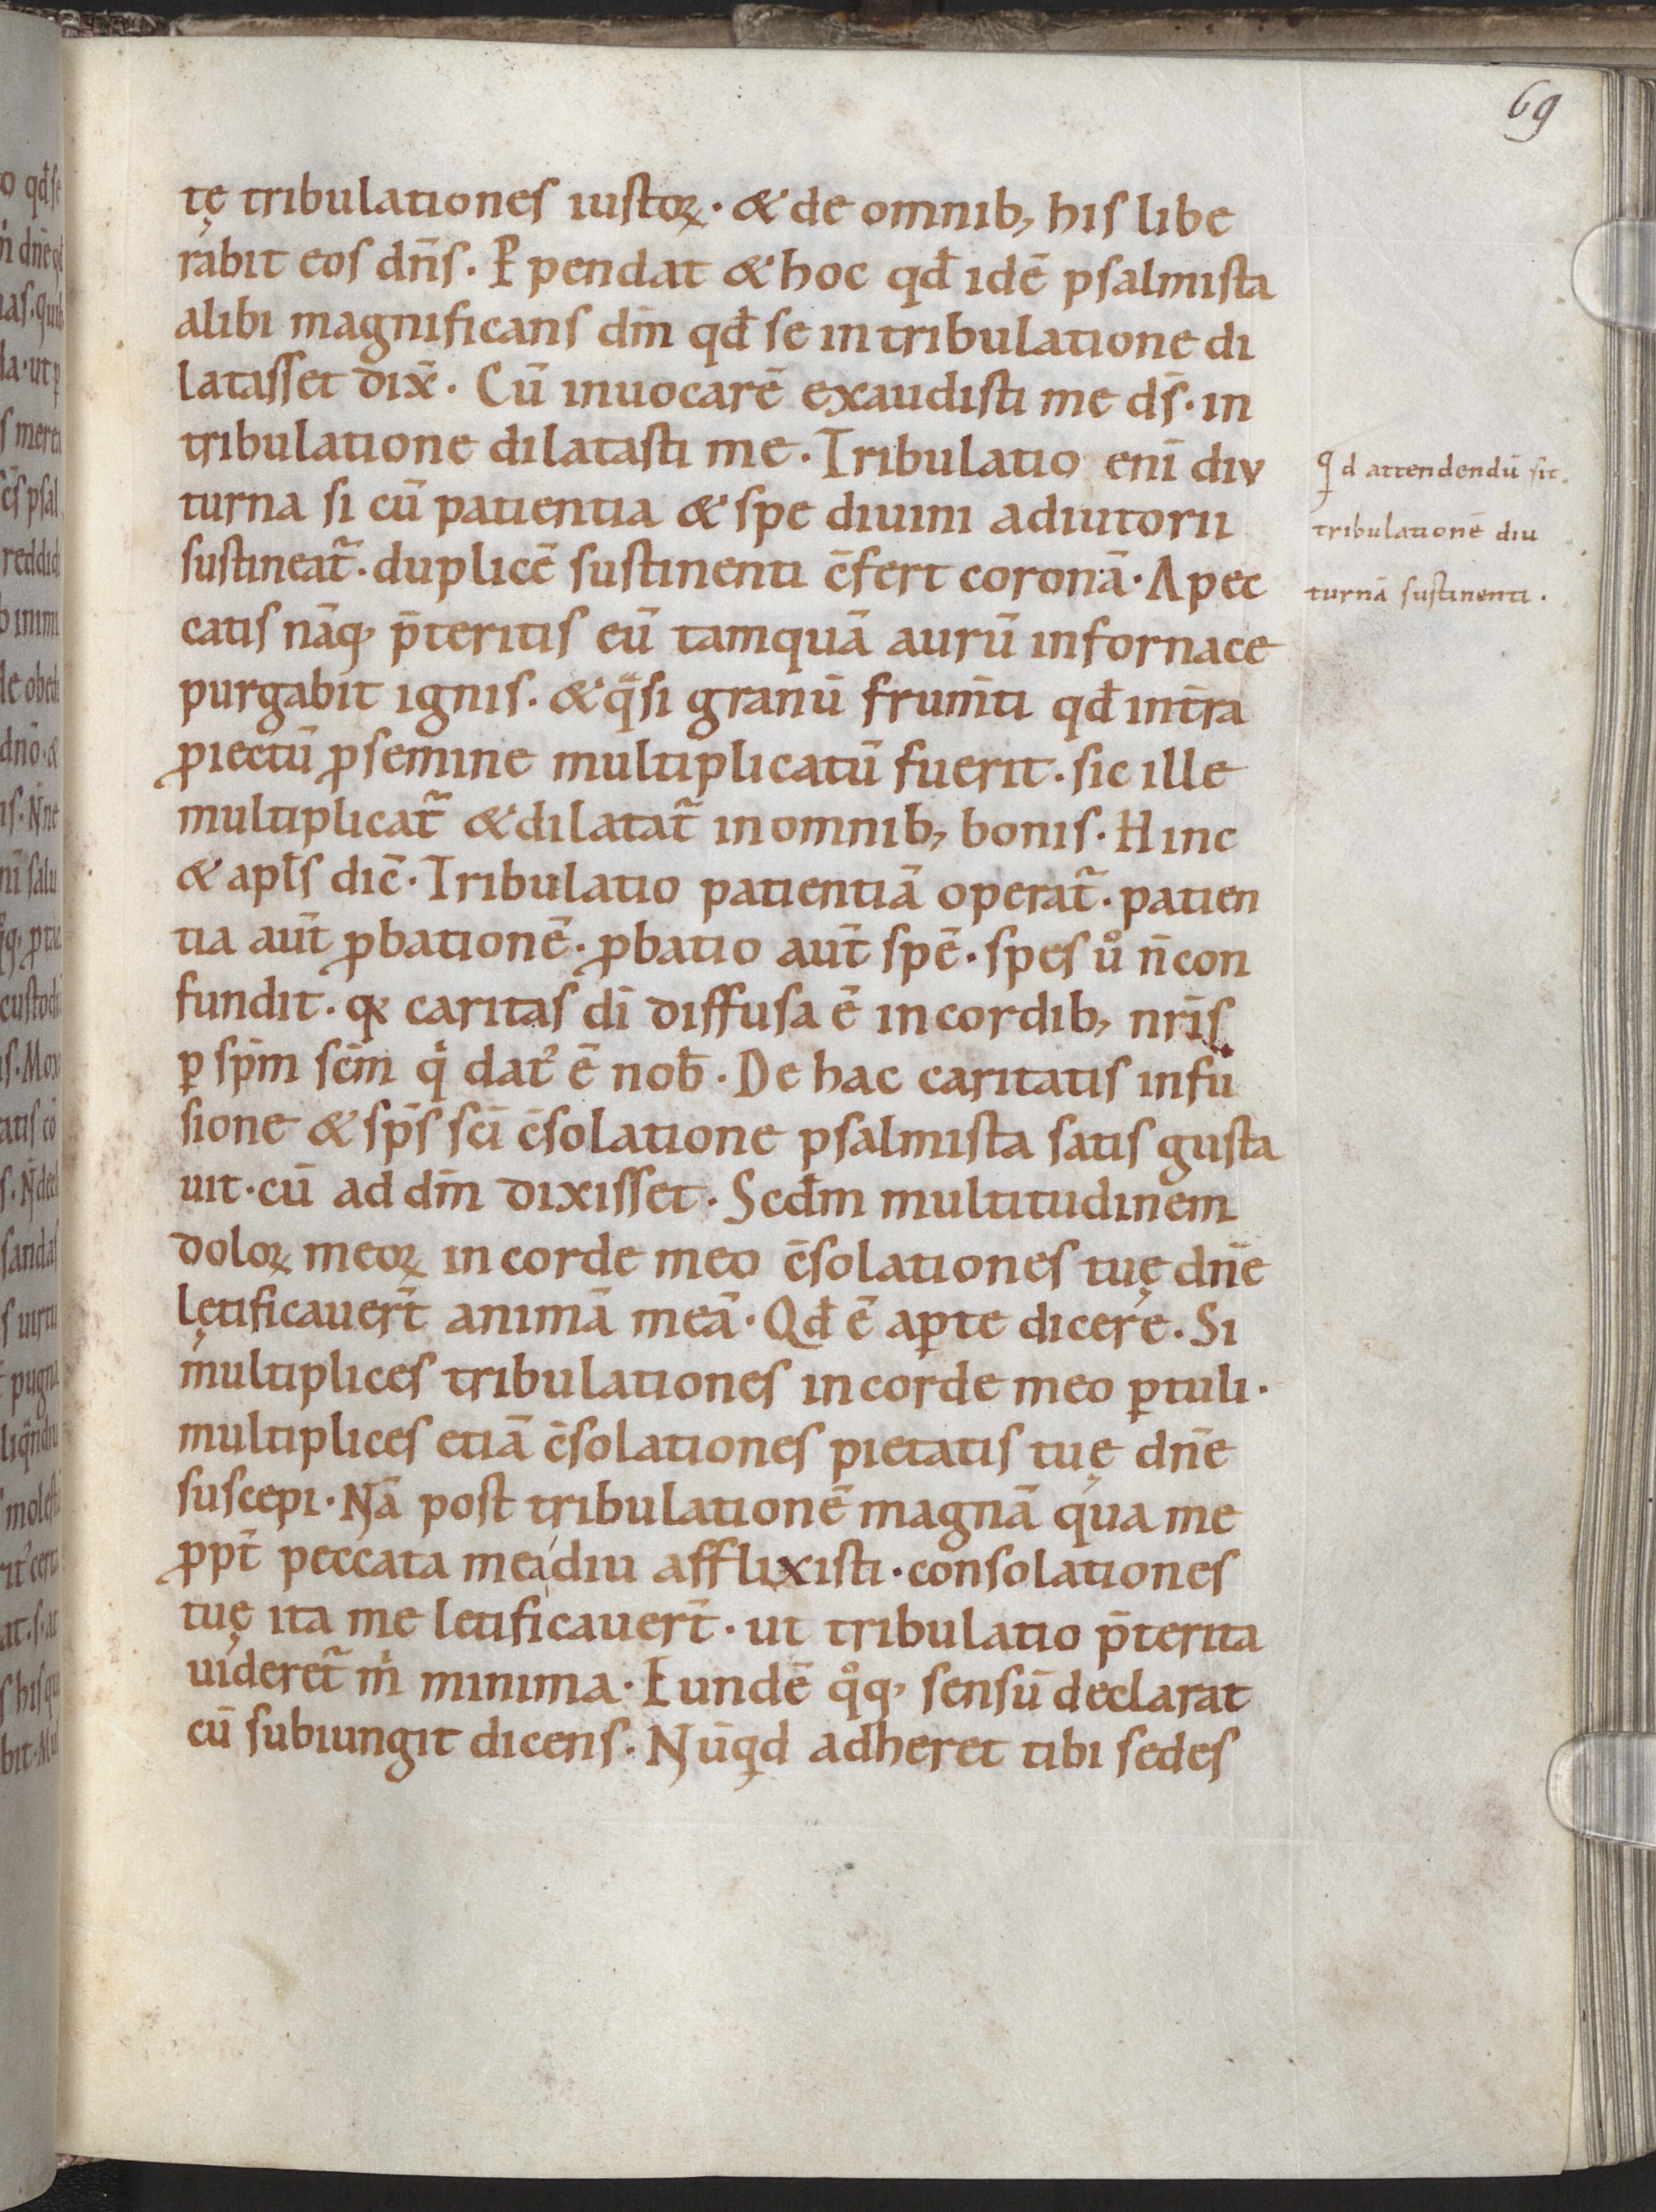 69
tę tribulationes iustoꝝ · & de omnib; his libe
rabit eos dn̄s · Ꝑpendat & hoc qd̄ idē psalmista
alibi magnificans dm̄ qd̄ se in tribulatione di
latasset dix̄ · Cū inuocarē exaudisti me ds̄ · in
tribulatione dilatasti me · Tribulatio enī diu
turna si cū patientia & spe diuini adiutorii
sustineat᷑ · duplicē sustinenti c̄fert coronā · A pec
catis nāq; p̄teritis eū tamquā aurū in fornace
purgabit ignis · & qͣsi granū frum̄ti qd̄ int̄ra
ꝓiectū ꝓ semine multiplicatū fuerit · sic ille
multiplicat᷑ & dilatat᷑ in omnib; bonis · Hinc
& apl̄s dic̄ · Tribulatio patientiā operat᷑ · patien
tia aut̄ ꝓbationē · ꝓbatio aut̄ spē · spes uͦ n̄ con
fundit · qꝛ caritas dī diffusa ē in cordib; nr̄is
ꝑ sp̄m sc̄m qͥ datꝰ ē nob̄ · De hac caritatis infu
sione & sp̄s sc̄i c̄solatione psalmista satis gusta
uit · cū ad dm̄ dixisset · Scd̄m multitudinem
doloꝝ meoꝝ in corde meo c̄solationes tuę dn̄e
lętificauer̄t animā meā · Qd̄ ē aꝑte dicere · Si
multiplices tribulationes in corde meo ꝑtuli ·
multiplices etiā c̄solationes pietatis tuę dn̄e
suscepi · Nā post tribulationē magnā qua me
ꝓpt̄ peccata mea diu afflixisti · consolationes
tuę ita me letificauer̄t · ut tribulatio p̄terita
uideret᷑ mͥ minima · Eundē qͦq; sensū declarat
cū subiungit dicens · Nūqͥd adheret tibi sedes
qͥd attendendū sit
tribulationē diu
turnā sustinenti ·